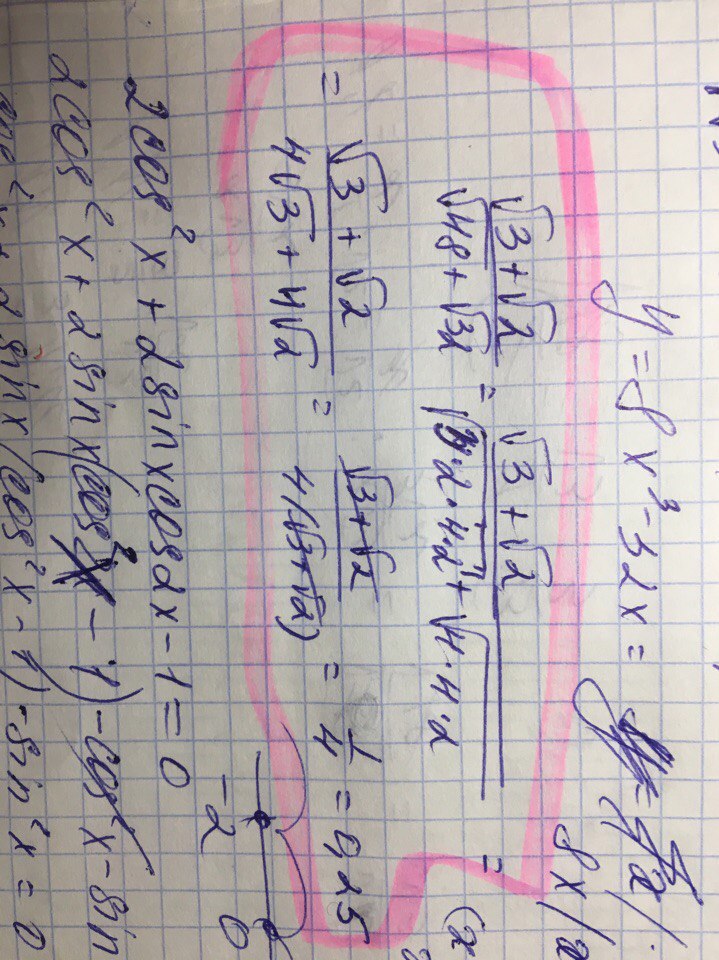 y = 8x³ - 32x =
8x(
(√3 + √2)/(√48 + √32) = (√3 + √2)/(√3·2·4·2 + √4·4·2) =
= (√3 + √2)/(4√3 + 4√2) = (√3+√2)/(4(√3+√2)) = 1/4 = 0,25
-2 0
2cos²x + 2sinxcos2x - 1 = 0
2cos²x + 2sinx(cos²x - 1) - cos²x - sin
sinx(cos²x - 1) - sin²x = 0